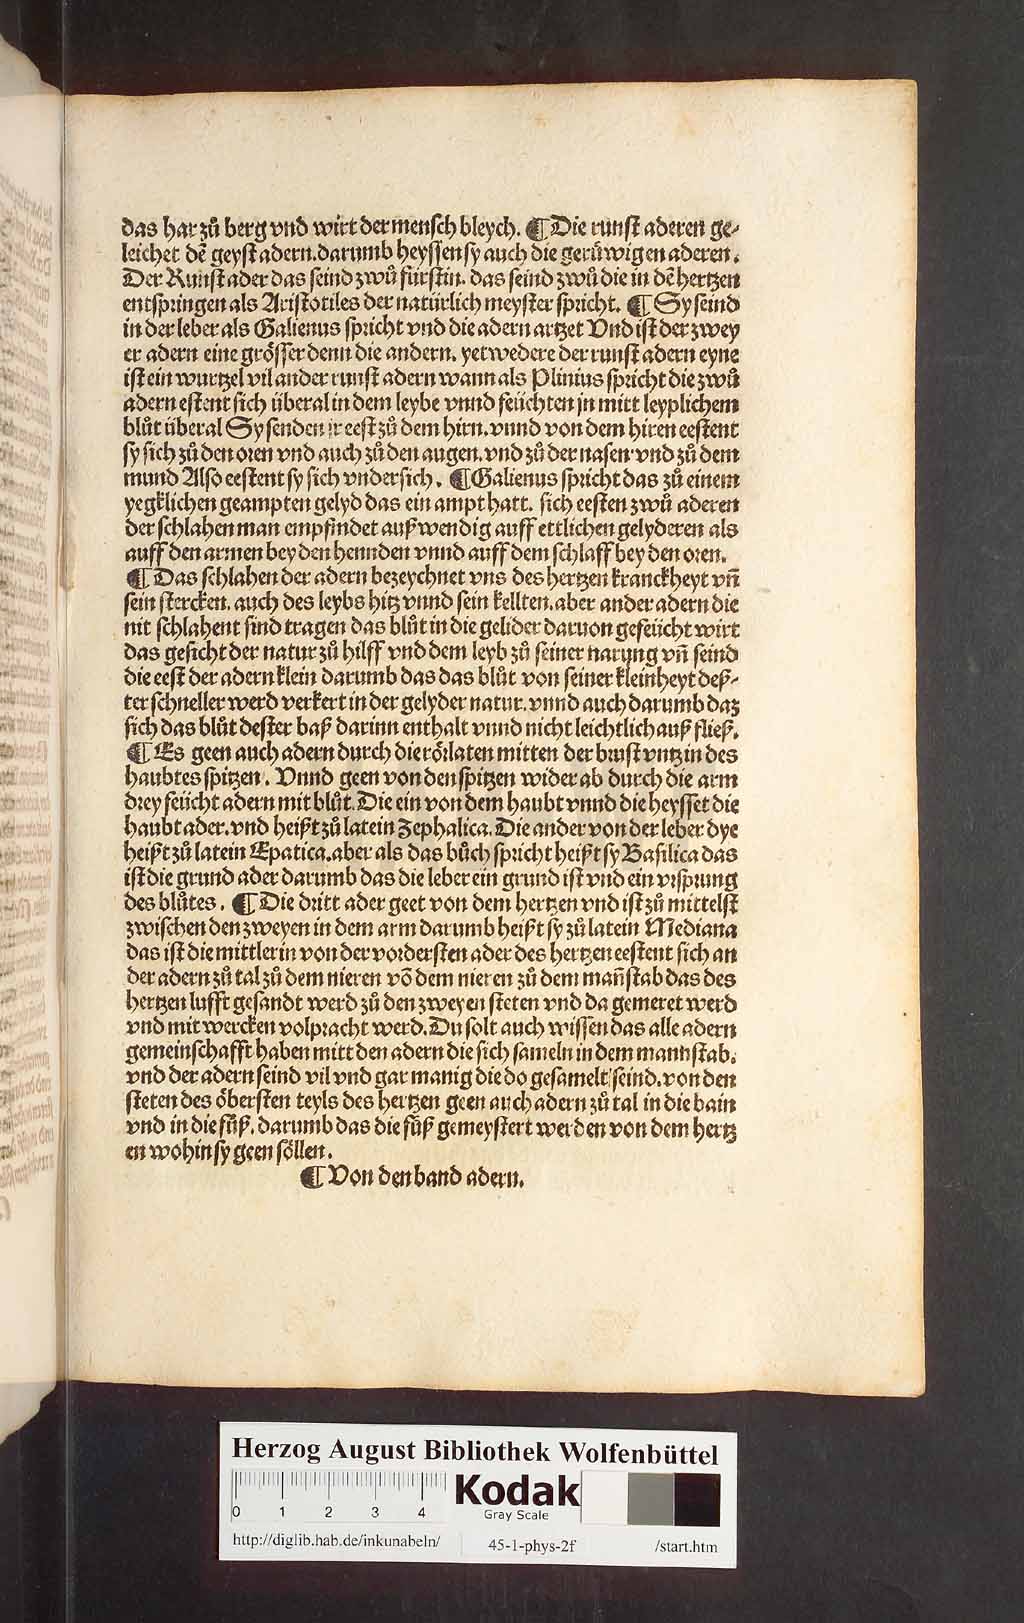 das har zů berg vnd wirt der mensch bleych. ¶ Die runst aderen ge⸗
leichet dē geyst adern. darumb heyssen sy auch die gerüwigen aderen.
Der Runst ader das seind zwů fürstin. das seind zwů die in dē hertzen
entspringen als Aristotiles der natürlich meyster spricht. ¶ Sy seind
in der leber als Galienus spricht vnd die adern artzet Vnd ist der zwey
er adern eine grösser denn die andern. yetwedere der runst adern eyne
ist ein wurtzel vil ander runst adern wann als Plinius spricht die zwů
adern estent sich überal in dem leybe vnnd feüchten jn mitt leyplichem
blůt überal Sy senden jr eest zů dem hirn. vnnd von dem hiren eestent
sy sich zů den oren vnd auch zů den augen. vnd zů der nasen vnd zů dem
mund Also eestent sy sich vndersich. ¶ Galienus spricht das zů einem
yegklichen geampten gelyd das ein ampt hatt. sich eesten zwů aderen
der schlahen man empfindet außwendig auff ettlichen gelyderen als
auff den armen bey den hennden vnnd auff dem schlaff bey den oren.
¶ Das schlahen der adern bezeychnet vns des hertzen kranckheyt vn̄
sein stercken. auch des leybs hitz vnnd sein kellten. aber ander adern die
nit schlahent sind tragen das blůt in die gelider daruon gefeücht wirt
das gesicht der natur zů hilff vnd dem leyb zů seiner narung vn̄ seind
die eest der adern klein darumb das das blůt von seiner kleinheyt deß⸗
ter schneller werd verkert in der gelyder natur. vnnd auch darumb daz
sich das blůt dester baß darinn enthalt vnnd nicht leichtlich auß fließ.
¶ Es geen auch adern durch die rörlaten mitten der brust vntz in des
haubtes spitzen. Vnnd geen von den spitzen wider ab durch die arm
drey feücht adern mit blůt. Die ein von dem haubt vnnd die heysset die
haubt ader. vnd heißt zů latein Zephalica. Die ander von der leber dye
heißt zů latein Epatica. aber als das bůch spricht heißt sy Basilica das
ist die grund ader darumb das die leber ein grund ist vnd ein vrsprung
des blůtes. ¶ Die dritt ader geet von dem hertzen vnd ist zů mittelst
zwischen den zweyen in dem arm darumb heißt sy zů latein Mediana
das ist die mittlerin von der vordersten ader des hertzen eestent sich an
der adern zů tal zů dem nieren vō dem nieren zů dem man̄stab das des
hertzen lufft gesandt werd zů den zweyen steten vnd da gemeret werd
vnd mit wercken volpracht werd. Du solt auch wissen das alle adern
gemeinschafft haben mitt den adern die sich sameln in dem mannstab.
vnd der adern seind vil vnd gar manig die do gesamelt seind. von den
steten des öbersten teyls des hertzen geen auch adern zů tal in die bain
vnd in die füß. darumb das die füß gemeystert werden von dem hertz
en wohin sy geen söllen.
¶ Von den band adern.
Herzog August Bibliothek Wolfenbüttel
0 1 2 3 4
Kodak
Gray Scale
http://diglib.hab.de/inkunabeln/ 45-1-phys-2f /start.htm